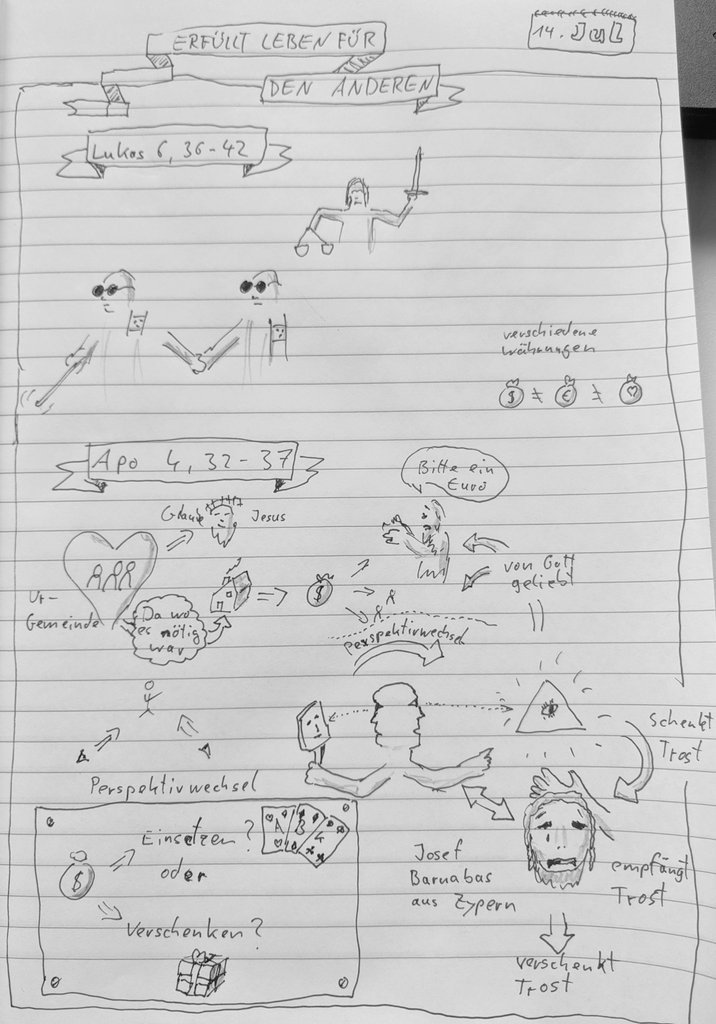 14. Jul
ERFÜLLT LEBEN FÜR
DEN ANDEREN
Lukas 6, 36-42
verschiedene
Währungen
$ ≠ € ≠ ♡
Apo 4, 32-37
Bitte ein
Euro
Glaube
Jesus
Ur-
Gemeinde
Da wo
es nötig
war
$
von Gott
geliebt
Perspektivwechsel
schenkt
Trost
Perspektivwechsel
$
Einsetzen?
oder
Verschenken?
A
B
4
Josef
Barnabas
aus Zypern
empfängt
Trost
verschenkt
Trost